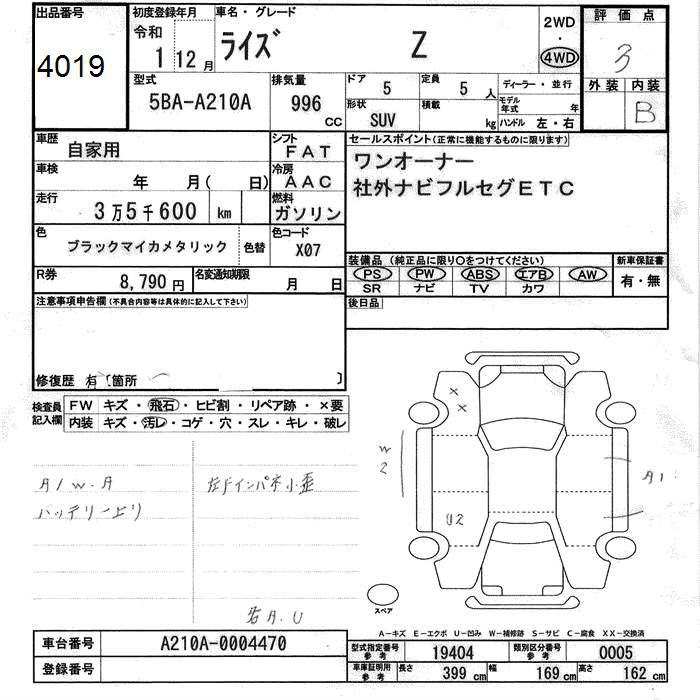 出品番号 4019
初度登録年月 令和 1 12月
車名・グレード ライズ Z
2WD ・ 4WD
評価点 3
外装 内装 B
型式 5BA-A210A
排気量 996 CC
ドア 5
定員 5 人
形状 SUV
積載 kg
ディーラー・並行
モデル年式 年
ハンドル 左・右
車歴 自家用
シフト FAT
車検 年 月( 日)
冷房 AAC
走行 3万5千600 km
燃料 ガソリン
色 ブラックマイカメタリック 色替
色コード X07
R券 8,790円
名変通知期限 月 日
セールスポイント(正常に機能するものに限ります)
ワンオーナー
社外ナビフルセグETC
装備品 (純正品に限り○をつけてください)
新車保証書
PS PW ABS エアB AW
有・無
SR ナビ TV カワ
後日品
注意事項申告欄(不具合内容等は具体的に記入して下さい)
修復歴 有 [箇所 ]
検査員記入欄
FW キズ・飛石・ヒビ割・リペア跡・×要
内装 キズ・汚レ・コゲ・穴・スレ・キレ・破レ
A1 W.A
バッテリー上リ
左Fインパネ小歪
各A.U
X
X
W
2
U2
A1
スペア
A-キズ E-エクボ U-凹み W-補修跡 S-サビ C-腐食 XX-交換済
車台番号 A210A-0004470
登録番号
型式指定番号 参考 19404
類別区分番号 参考 0005
車庫証明用 参考 長さ 399 cm 幅 169 cm 高さ 162 cm